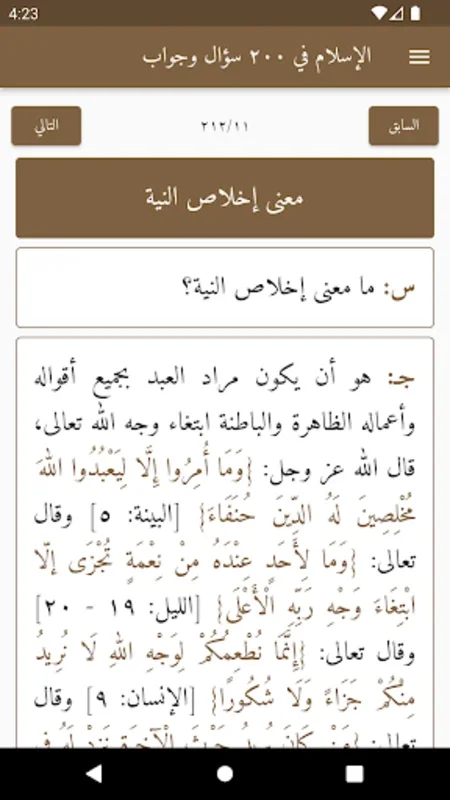 4:23
الإسلام في ٢٠٠ سؤال وجواب
السابق
٢١٢/١١
التالي
معنى إخلاص النية
س: ما معنى إخلاص النية؟
جـ: هو أن يكون مراد العبد بجميع أقواله
وأعماله الظاهرة والباطنة ابتغاء وجه الله تعالى،
قال الله عز وجل: {وَمَا أُمِرُوا إِلَّا لِيَعْبُدُوا اللهَ
مُخْلِصِينَ لَهُ الدِّينَ حُنَفَاءَ} [البينة: ٥] وقال
تعالى: {وَمَا لِأَحَدٍ عِنْدَهُ مِنْ نِعْمَةٍ تُجْزَى إِلَّا
ابْتِغَاءَ وَجْهِ رَبِّهِ الْأَعْلَى} [الليل: ١٩ - ٢٠]
وقال تعالى: {إِنَّمَا نُطْعِمُكُمْ لِوَجْهِ اللهِ لَا نُرِيدُ
مِنْكُمْ جَزَاءً وَلَا شُكُورًا} [الإنسان: ٩] وقال
تعالى: {مَنْ كَانَ يُرِيدُ حَرْثَ الْآخِرَةِ نَزِدْ لَهُ فِي